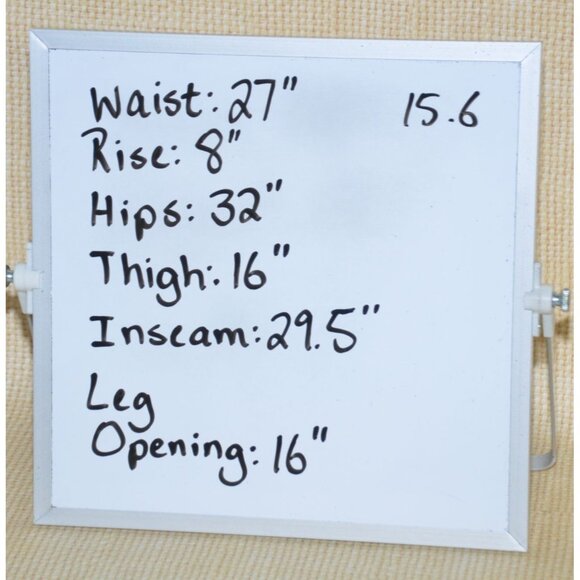 Waist: 27" 15.6
Rise: 8"
Hips: 32"
Thigh: 16"
Inseam: 29.5"
Leg
Opening: 16"